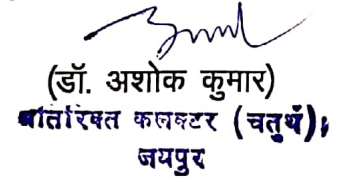 (डॉ. अशोक कुमार)
अतिरिक्त कलक्टर (चतुर्थ),
जयपुर